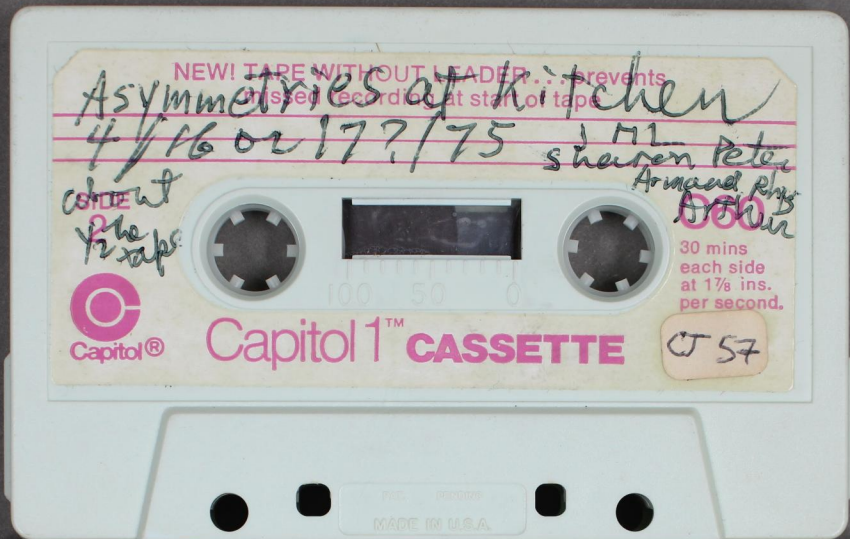 NEW! TAPE WITHOUT LEADER... prevents
missed recording at start of tape
Asymmetries at Kitchen
4/16 or 17?/75
ML
Sharon Peter
Armand
Arthur
about
1/2 the
tape
SIDE
2
C60
30 mins
each side
at 1⅞ ins.
per second.
100 50 0
Capitol®
Capitol 1™ CASSETTE
CJ 57
MADE IN U.S.A.